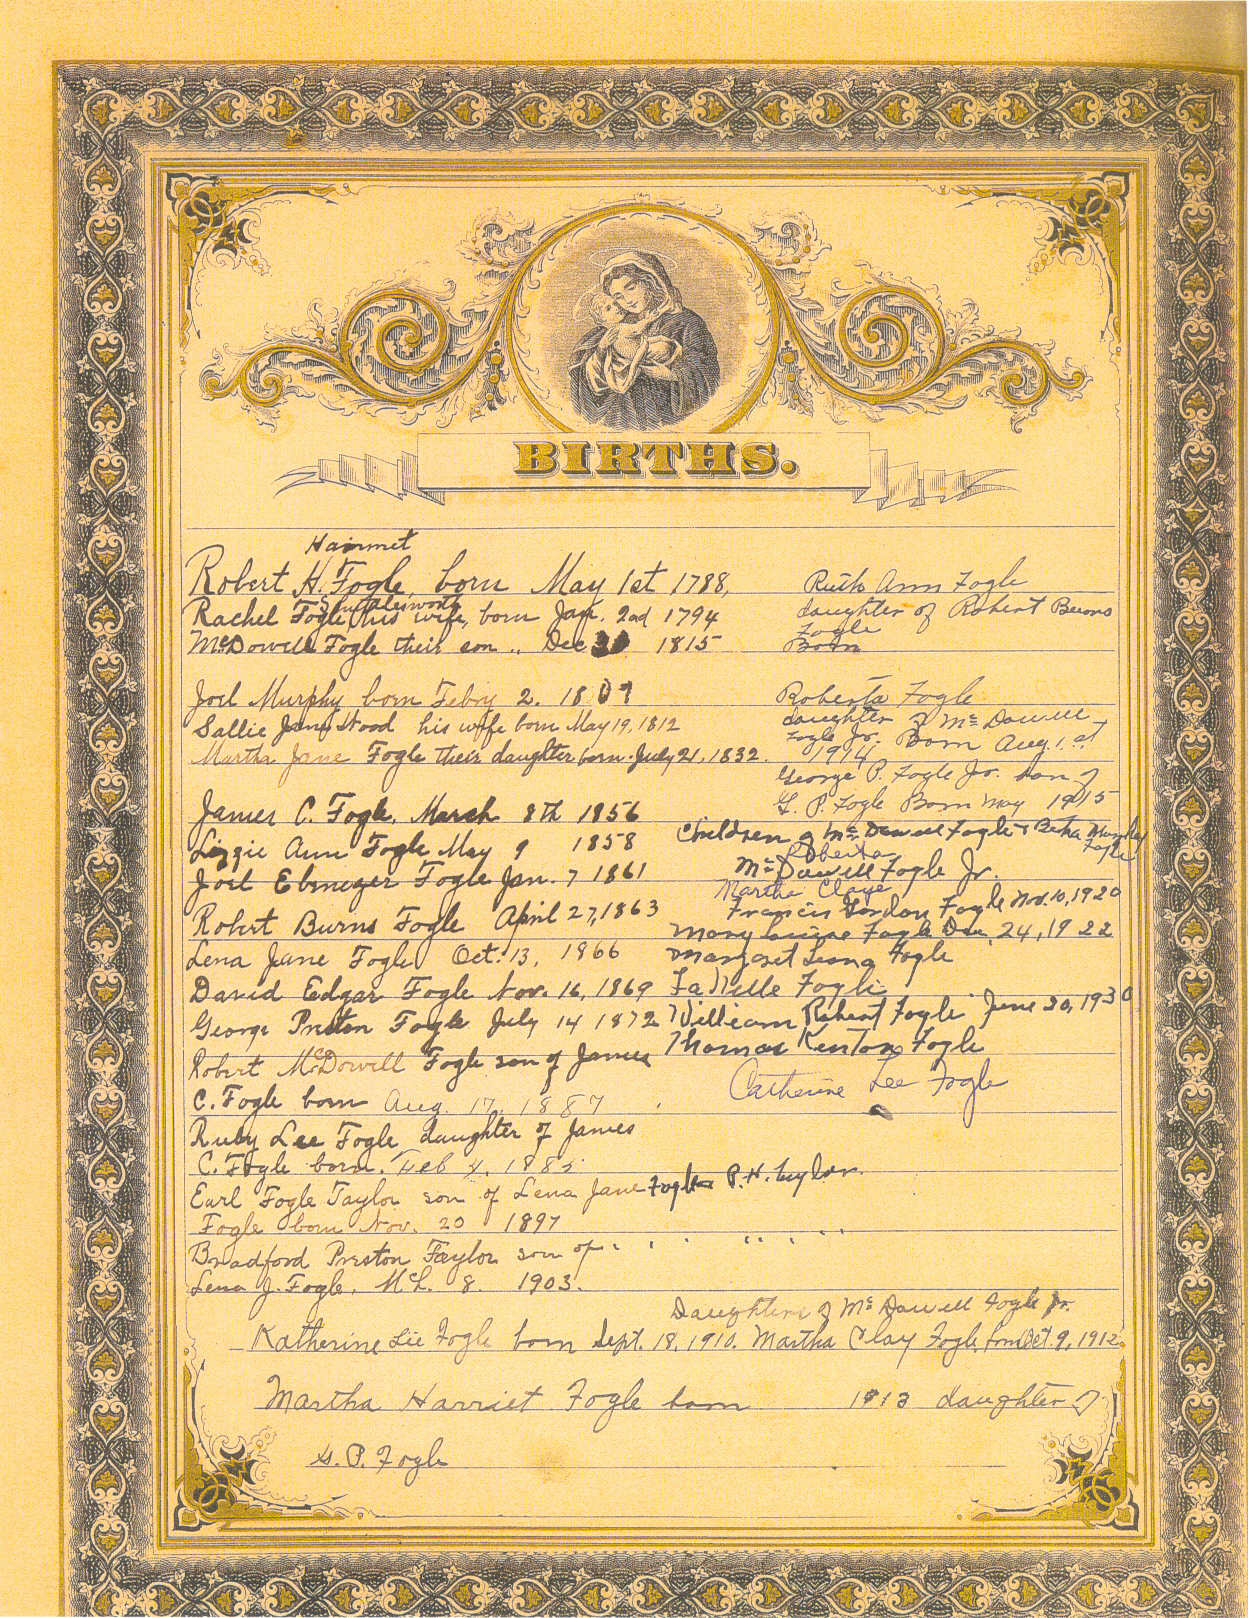 BIRTHS.
Hammet
Robert H. Fogle, born May 1st 1788,
Rachel Fogle his wife, born Jan. 2nd 1794
McDowell Fogle their son " Dec 1815
Joel Murphy born Febry 2. 18
Sallie Jane Wood his wife born May 19, 1812
Martha Jane Fogle their daughter born July 21, 1832.
James C. Fogle, March 8th 1856
Lizzie Ann Fogle May 9 1858
Joel Ebenezer Fogle Jan. 7 1861
Robert Burns Fogle April 27, 1863
Lena Jane Fogle Oct. 13, 1866
David Edgar Fogle Nov. 16, 1869
George Preston Fogle July 14 1872
Robert McDowell Fogle son of James
C. Fogle born Aug. 17, 1887
Ruby Lee Fogle daughter of James
C. Fogle born. Feb 4, 1885
Earl Fogle Taylor son of Lena Jane Fogle P. H. Taylor
Fogle born Nov. 20 1897
Bradford Preston Taylor son of " " " " " " "
Lena J. Fogle, Mch. 8. 1903.
Ruth Ann Fogle
daughter of Robert Burns
Fogle
Born
Roberta Fogle
daughter of Mc Dowell
Fogle Jr. Born Aug. 1st
1914
George P. Fogle Jr. son of
G. P. Fogle Born May 1915
Children of Mc Dowell Fogle &
Fogle
Roberta
Mc Dowell Fogle Jr.
Martha Claye
Francis Gordon Fogle Nov. 10, 1920
Mary Fogle Dec, 24, 1922
Margaret Fogle
LaNelle Fogle
William Robert Fogle June 20, 1930
Thomas Kenton Fogle
Catherine Lee Fogle
Daughters of Mc Dowell Fogle Jr.
Katherine Lee Fogle born Sept. 18, 1910. Martha Clay Fogle born Oct. 9, 1912
Martha Harriet Fogle born 1913 daughter of
G. P. Fogle